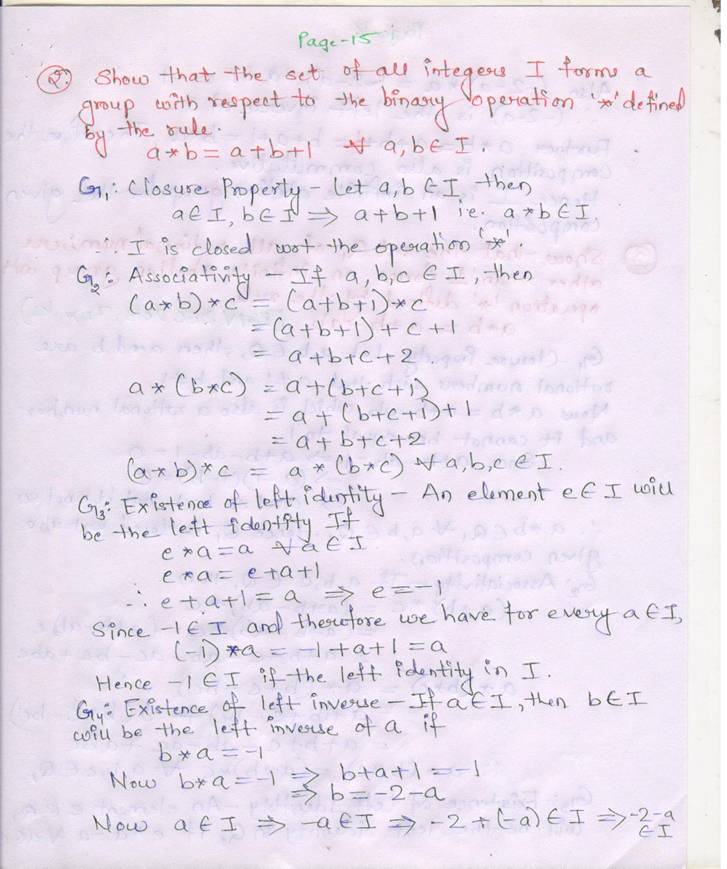 Page-15
Q. Show that the set of all integers I forms a
group with respect to the binary operation '*' defined
by the rule.
a*b = a+b+1 ∀ a,b∈I.
G₁: Closure Property - Let a,b ∈ I, then
a∈I, b∈I ⇒ a+b+1 ie. a*b∈I.
∴ I is closed wot the operation '*'.
G₂: Associativity - If a,b,c ∈ I, then
(a*b)*c = (a+b+1)*c
=(a+b+1)+c+1
= a+b+c+2.
a*(b*c) = a+(b+c+1)
= a+(b+c+1)+1
= a+b+c+2
(a*b)*c = a*(b*c) ∀ a,b,c∈I.
G₃: Existence of left identity - An element e∈I will
be the left identity If
e*a=a ∀a∈I.
e*a= e+a+1
∴ e+a+1=a ⇒ e=-1
Since -1∈I and therefore we have for every a∈I,
(-1)*a = -1+a+1=a
Hence -1∈I if the left identity in I.
G₄: Existence of left inverse - If a∈I, then b∈I
will be the left inverse of a if
b*a=-1
Now b*a=-1 ⇒ b+a+1=-1
⇒ b=-2-a
Now a∈I ⇒ -a∈I ⇒ -2+(-a)∈I ⇒ -2-a
∈I